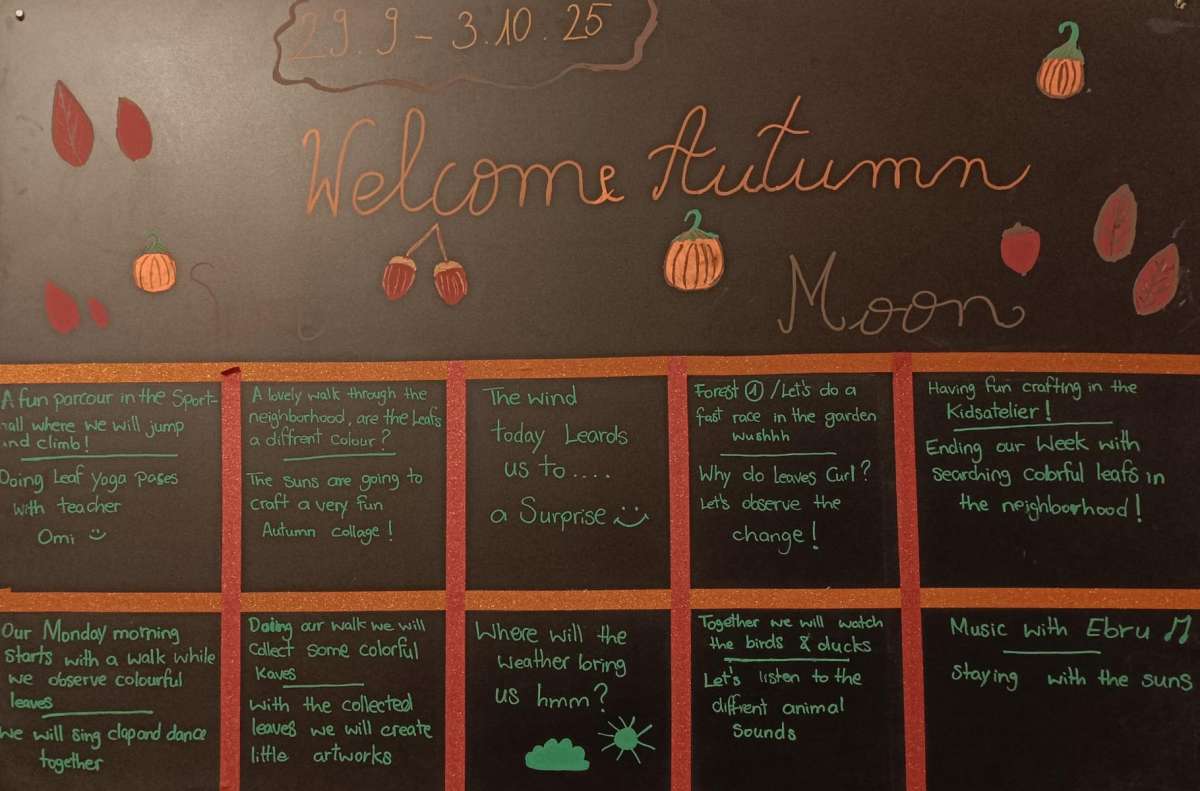 29.9 - 3.10.25
Welcome Autumn
Moon
A fun parcour in the Sport-
hall where we will jump
and climb!
Doing Leaf Yoga poses
with teacher
Omi
A lovely walk through the
neighborhood, are the leafs
a diffrent colour?
The suns are going to
craft a very fun
Autumn collage!
The wind
today Leards
us to....
a Surprise
Forest ① / Let's do a
fast race in the garden
wushhh
Why do leaves Curl?
Let's observe the
change!
Having fun crafting in the
Kidsatelier!
Ending our Week with
searching colorful leafs in
the neighboorhood!
Our Monday morning
starts with a walk while
we observe colourful
leaves
We will sing clap and dance
together
Doing our walk we will
collect some colorful
leaves
With the collected
leaves we will create
little artworks
Where will the
weather bring
us hmm?
Together we will watch
the birds & ducks
Let's listen to the
diffrent animal
Sounds
Music with Ebru
Staying with the suns